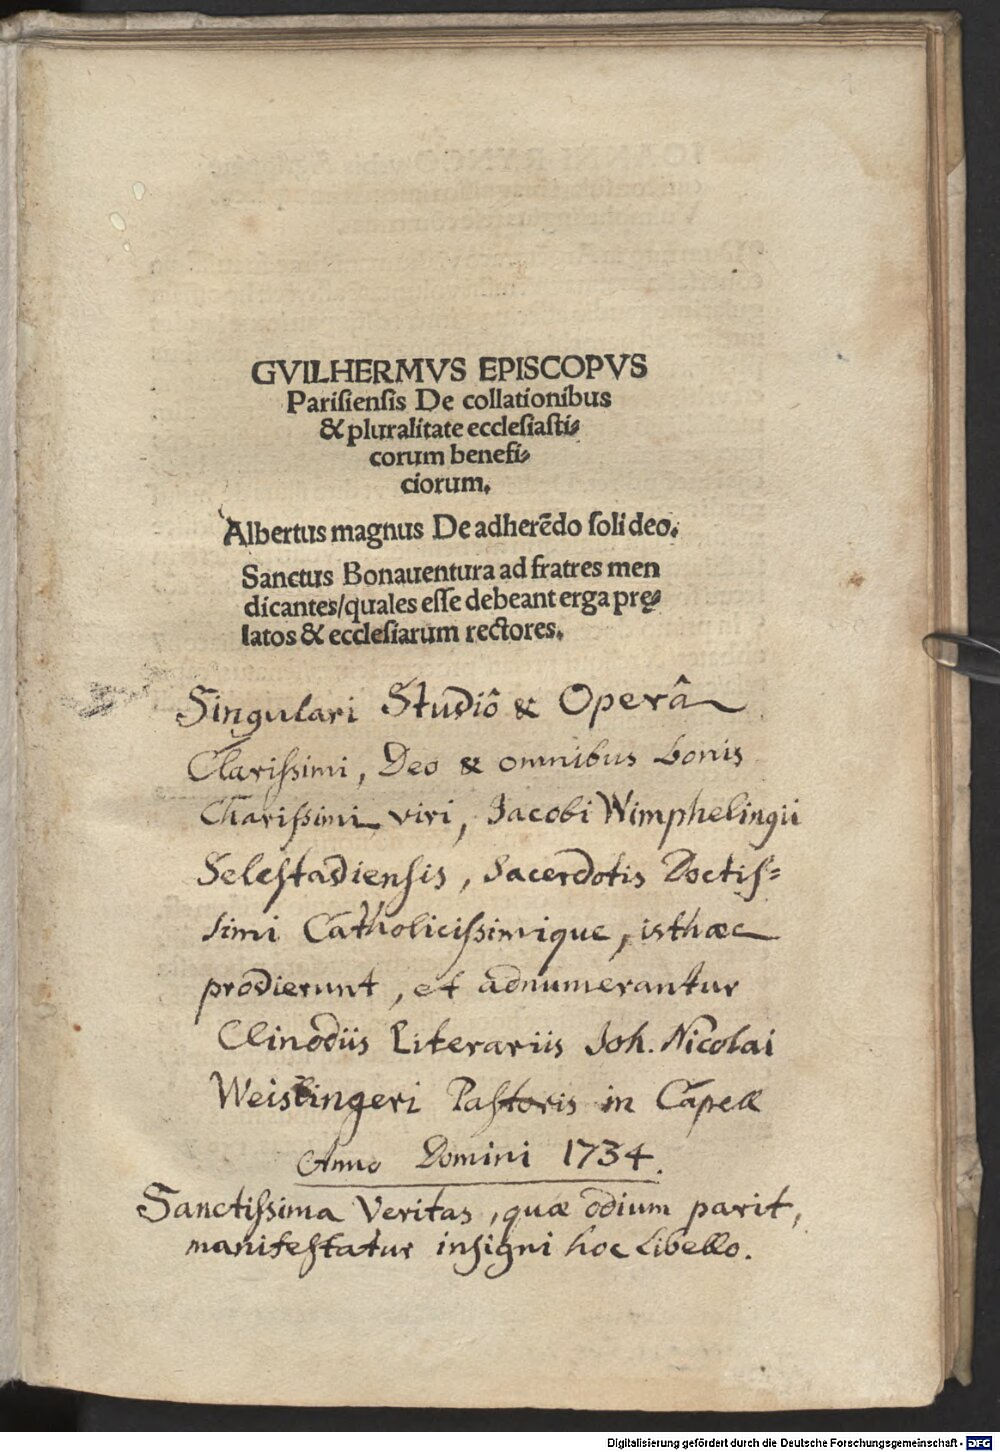 GVILHERMVS EPISCOPVS
Pariſienſis De collationibus
& pluralitate eccleſiaſti⸗
corum benefi⸗
ciorum.
Albertus magnus De adherēdo ſoli deo.
Sanctus Bonauentura ad fratres men
dicantes/quales eſſe debeant erga prę⸗
latos & eccleſiarum rectores.
Singulari Studiô & Operâ
Clariſsimi, Deo & omnibus bonis
Chariſsimi viri, Jacobi Wimphelingii
Seleſtadienſis, Sacerdotis Doctiſ⸗
simi Catholiciſsimique, isthæc
prodierunt, et adnumerantur
Clinodiis Literariis Joh. Nicolai
Weislingeri Paſtoris in Capell
Anno Domini 1734.
Sanctiſsima Veritas, quæ odium parit,
manifeſtatur inſigni hoc Libello.
Digitalisierung gefördert durch die Deutsche Forschungsgemeinschaft - DFG